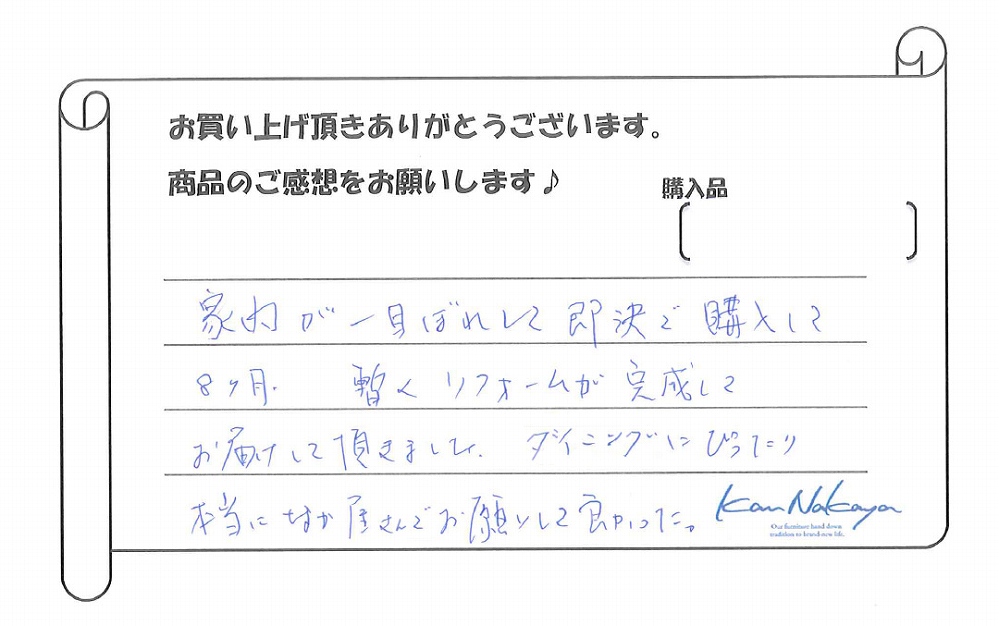 お買い上げ頂きありがとうございます。
商品のご感想をお願いします♪
購入品
家内が一目ぼれして即決で購入して
8ヶ月. 暫くリフォームが完成して
お届けして頂きました. ダイニングにぴったり
本当になか屋さんでお願いして良かった。
Kan Nakaya
Our furniture hand down
tradition to brand-new life.